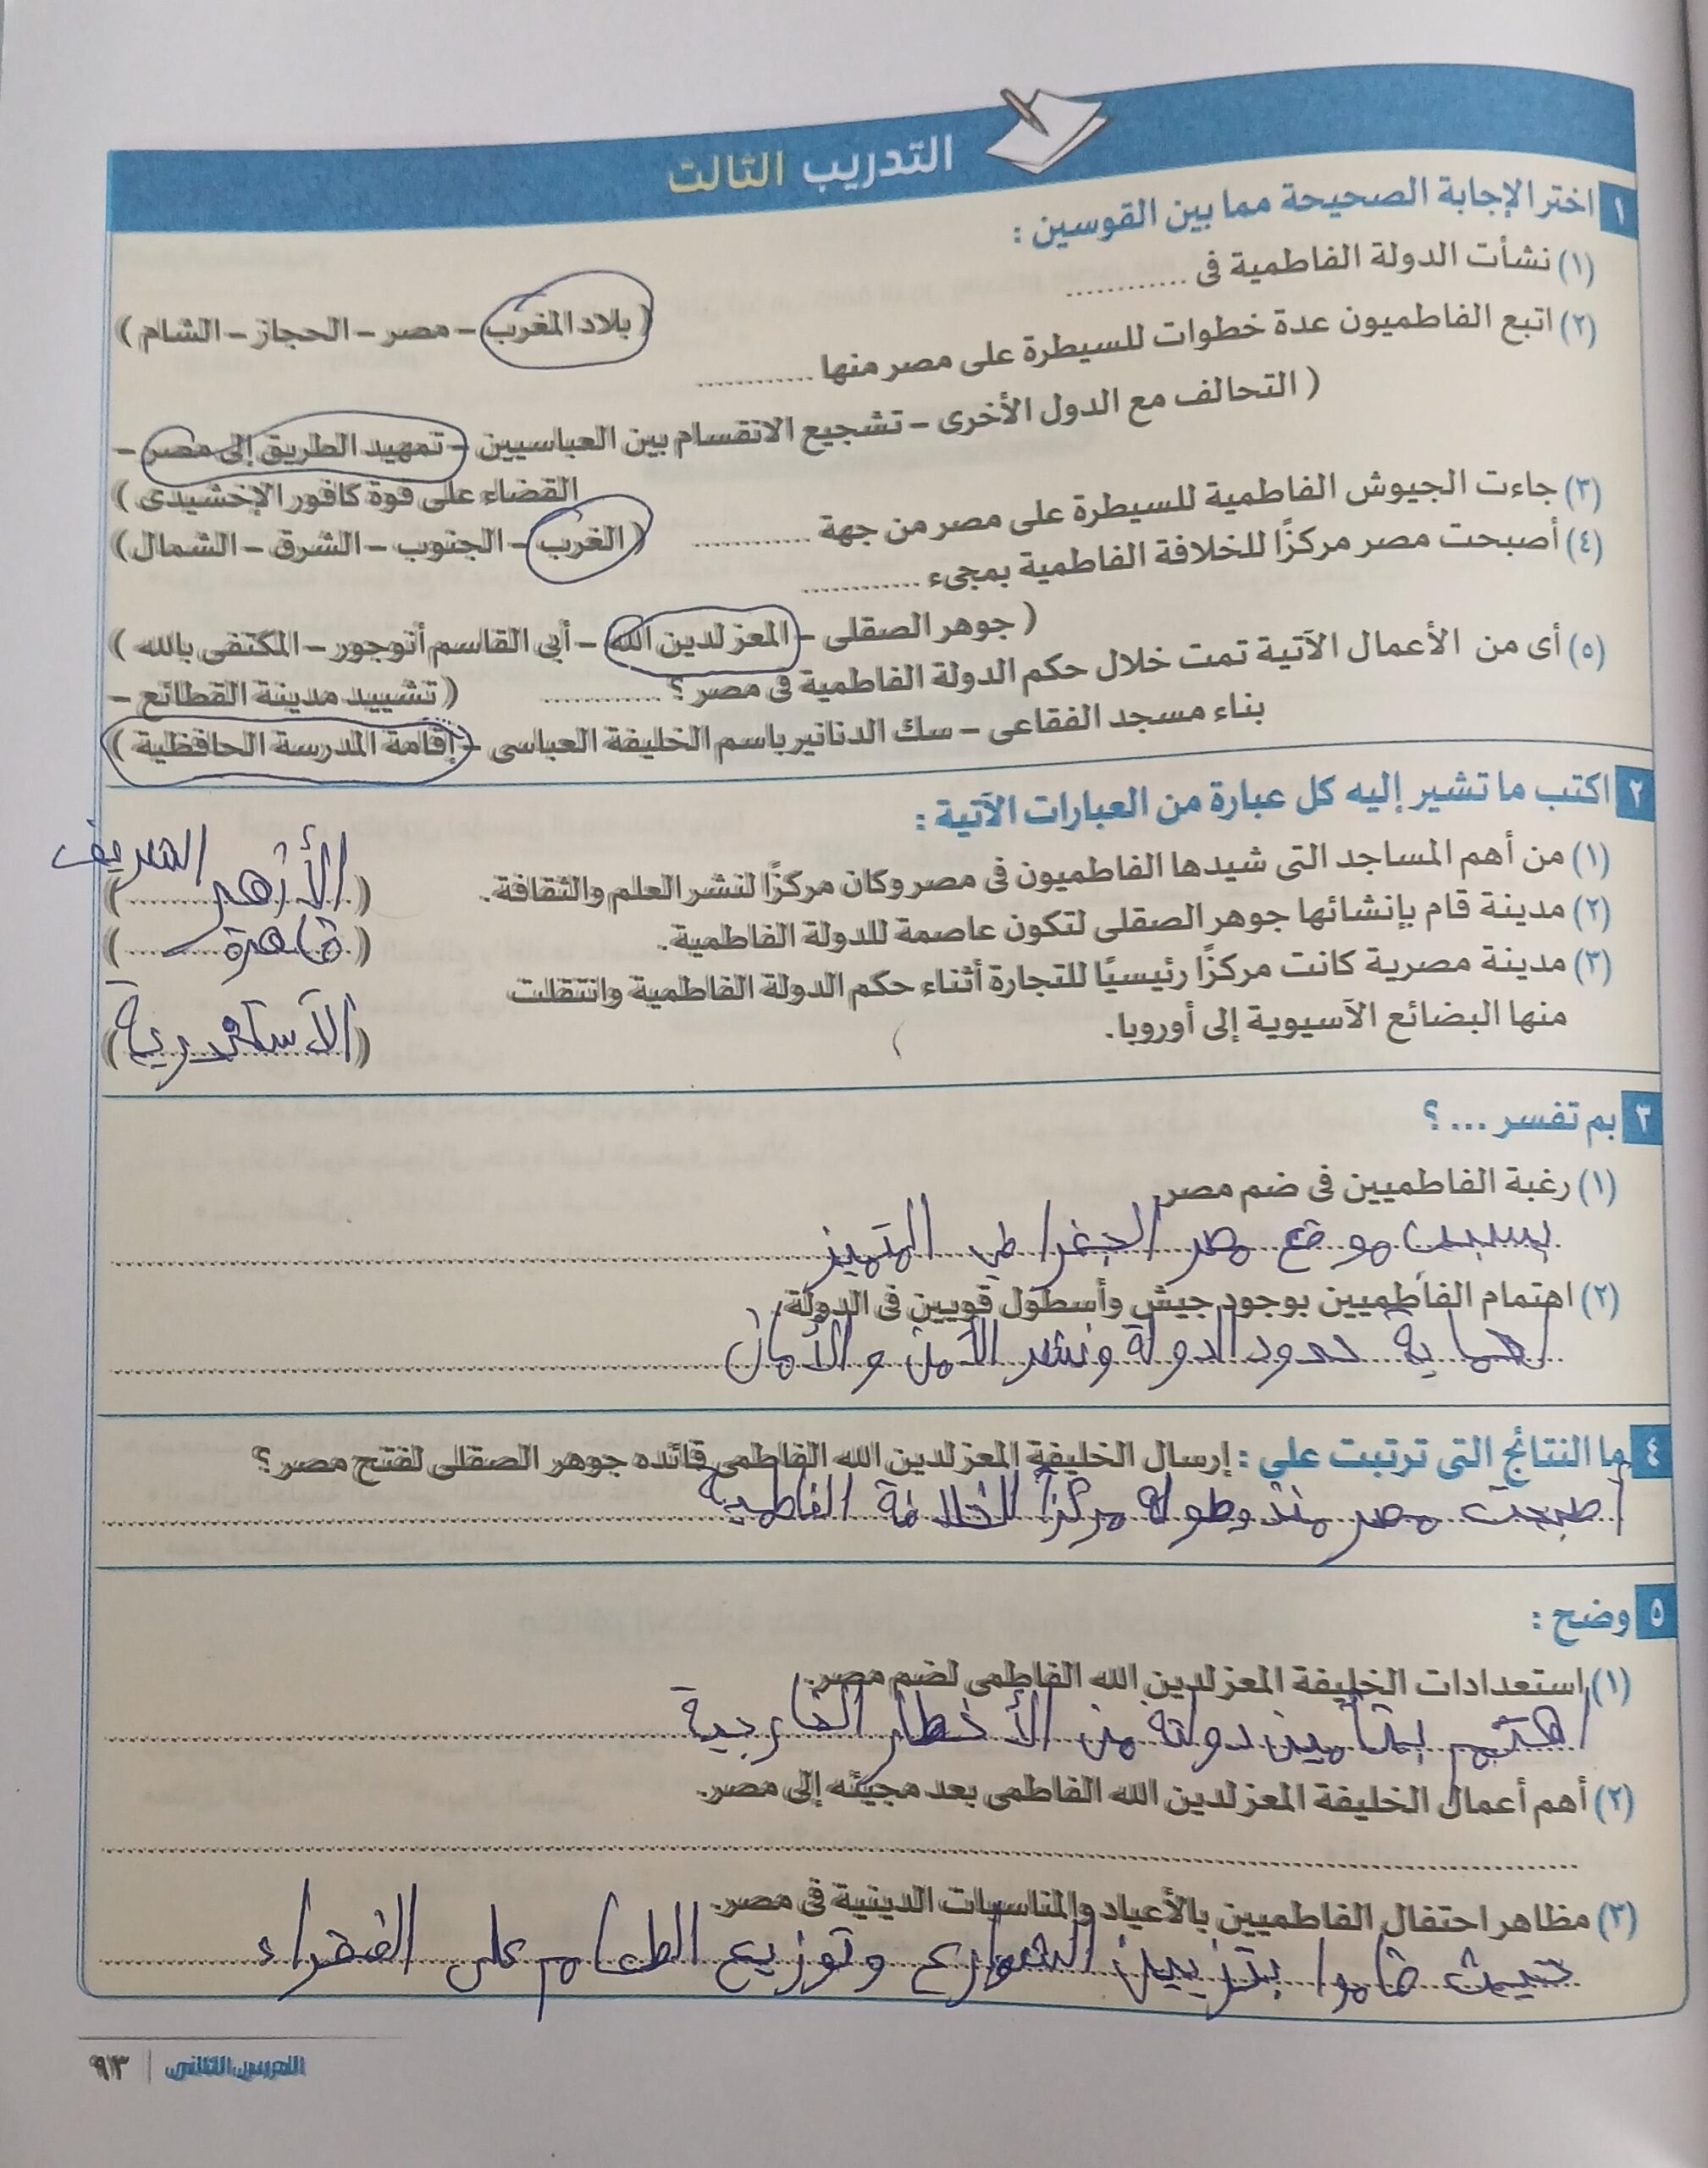 التدريب الثالث
١ اختر الإجابة الصحيحة مما بين القوسين :
(١) نشأت الدولة الفاطمية فى ............
( بلاد المغرب – مصر – الحجاز – الشام )
(٢) اتبع الفاطميون عدة خطوات للسيطرة على مصر منها ............
( التحالف مع الدول الأخرى – تشجيع الانقسام بين العباسيين – تمهيد الطريق إلى مصر –
القضاء على قوة كافور الإخشيدى )
(٣) جاءت الجيوش الفاطمية للسيطرة على مصر من جهة ............ ( الغرب – الجنوب – الشرق – الشمال )
(٤) أصبحت مصر مركزًا للخلافة الفاطمية بمجىء ............
( جوهر الصقلى – المعز لدين الله – أبى القاسم أنوجور – المكتفى بالله )
(٥) أى من الأعمال الآتية تمت خلال حكم الدولة الفاطمية فى مصر ؟ ............ ( تشييد مدينة القطائع –
بناء مسجد الفقاعى – سك الدنانير باسم الخليفة العباسى – إقامة المدرسة الحافظية )
٢ اكتب ما تشير إليه كل عبارة من العبارات الآتية :
(١) من أهم المساجد التى شيدها الفاطميون فى مصر وكان مركزًا لنشر العلم والثقافة. ( الأزهر الشريف )
(٢) مدينة قام بإنشائها جوهر الصقلى لتكون عاصمة للدولة الفاطمية. ( قاهرة )
(٣) مدينة مصرية كانت مركزًا رئيسيًا للتجارة أثناء حكم الدولة الفاطمية وانتقلت
منها البضائع الآسيوية إلى أوروبا. ( الاسكندرية )
٣ بم تفسر ... ؟
(١) رغبة الفاطميين فى ضم مصر.
بسبب موقع مصر الجغرافي المتميز
(٢) اهتمام الفاطميين بوجود جيش وأسطول قويين فى الدولة.
لحماية حدود الدولة ونشر الأمن و الأمان
٤ ما النتائج التى ترتبت على : إرسال الخليفة المعز لدين الله الفاطمى قائده جوهر الصقلى لفتح مصر ؟
أصبحت مصر منذ وصوله مركزاً للخلافة الفاطمية
٥ وضح :
(١) استعدادات الخليفة المعز لدين الله الفاطمى لضم مصر.
اهتم بتأمين دولته من الأخطار الخارجية
(٢) أهم أعمال الخليفة المعز لدين الله الفاطمى بعد مجيئه إلى مصر.
(٣) مظاهر احتفال الفاطميين بالأعياد والمناسبات الدينية فى مصر.
حيث قاموا بتزيين الشوارع وتوزيع الطعام على الفقراء
الدرس الثانى | ٩٣